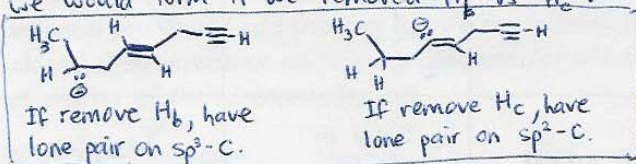 we would form if we removed H
H₃C H ≡-H H₃C ⊖ ≡-H
H H H H H
⊖
If remove H_b, have
lone pair on sp³-C.
If remove H_c, have
lone pair on sp²-C.